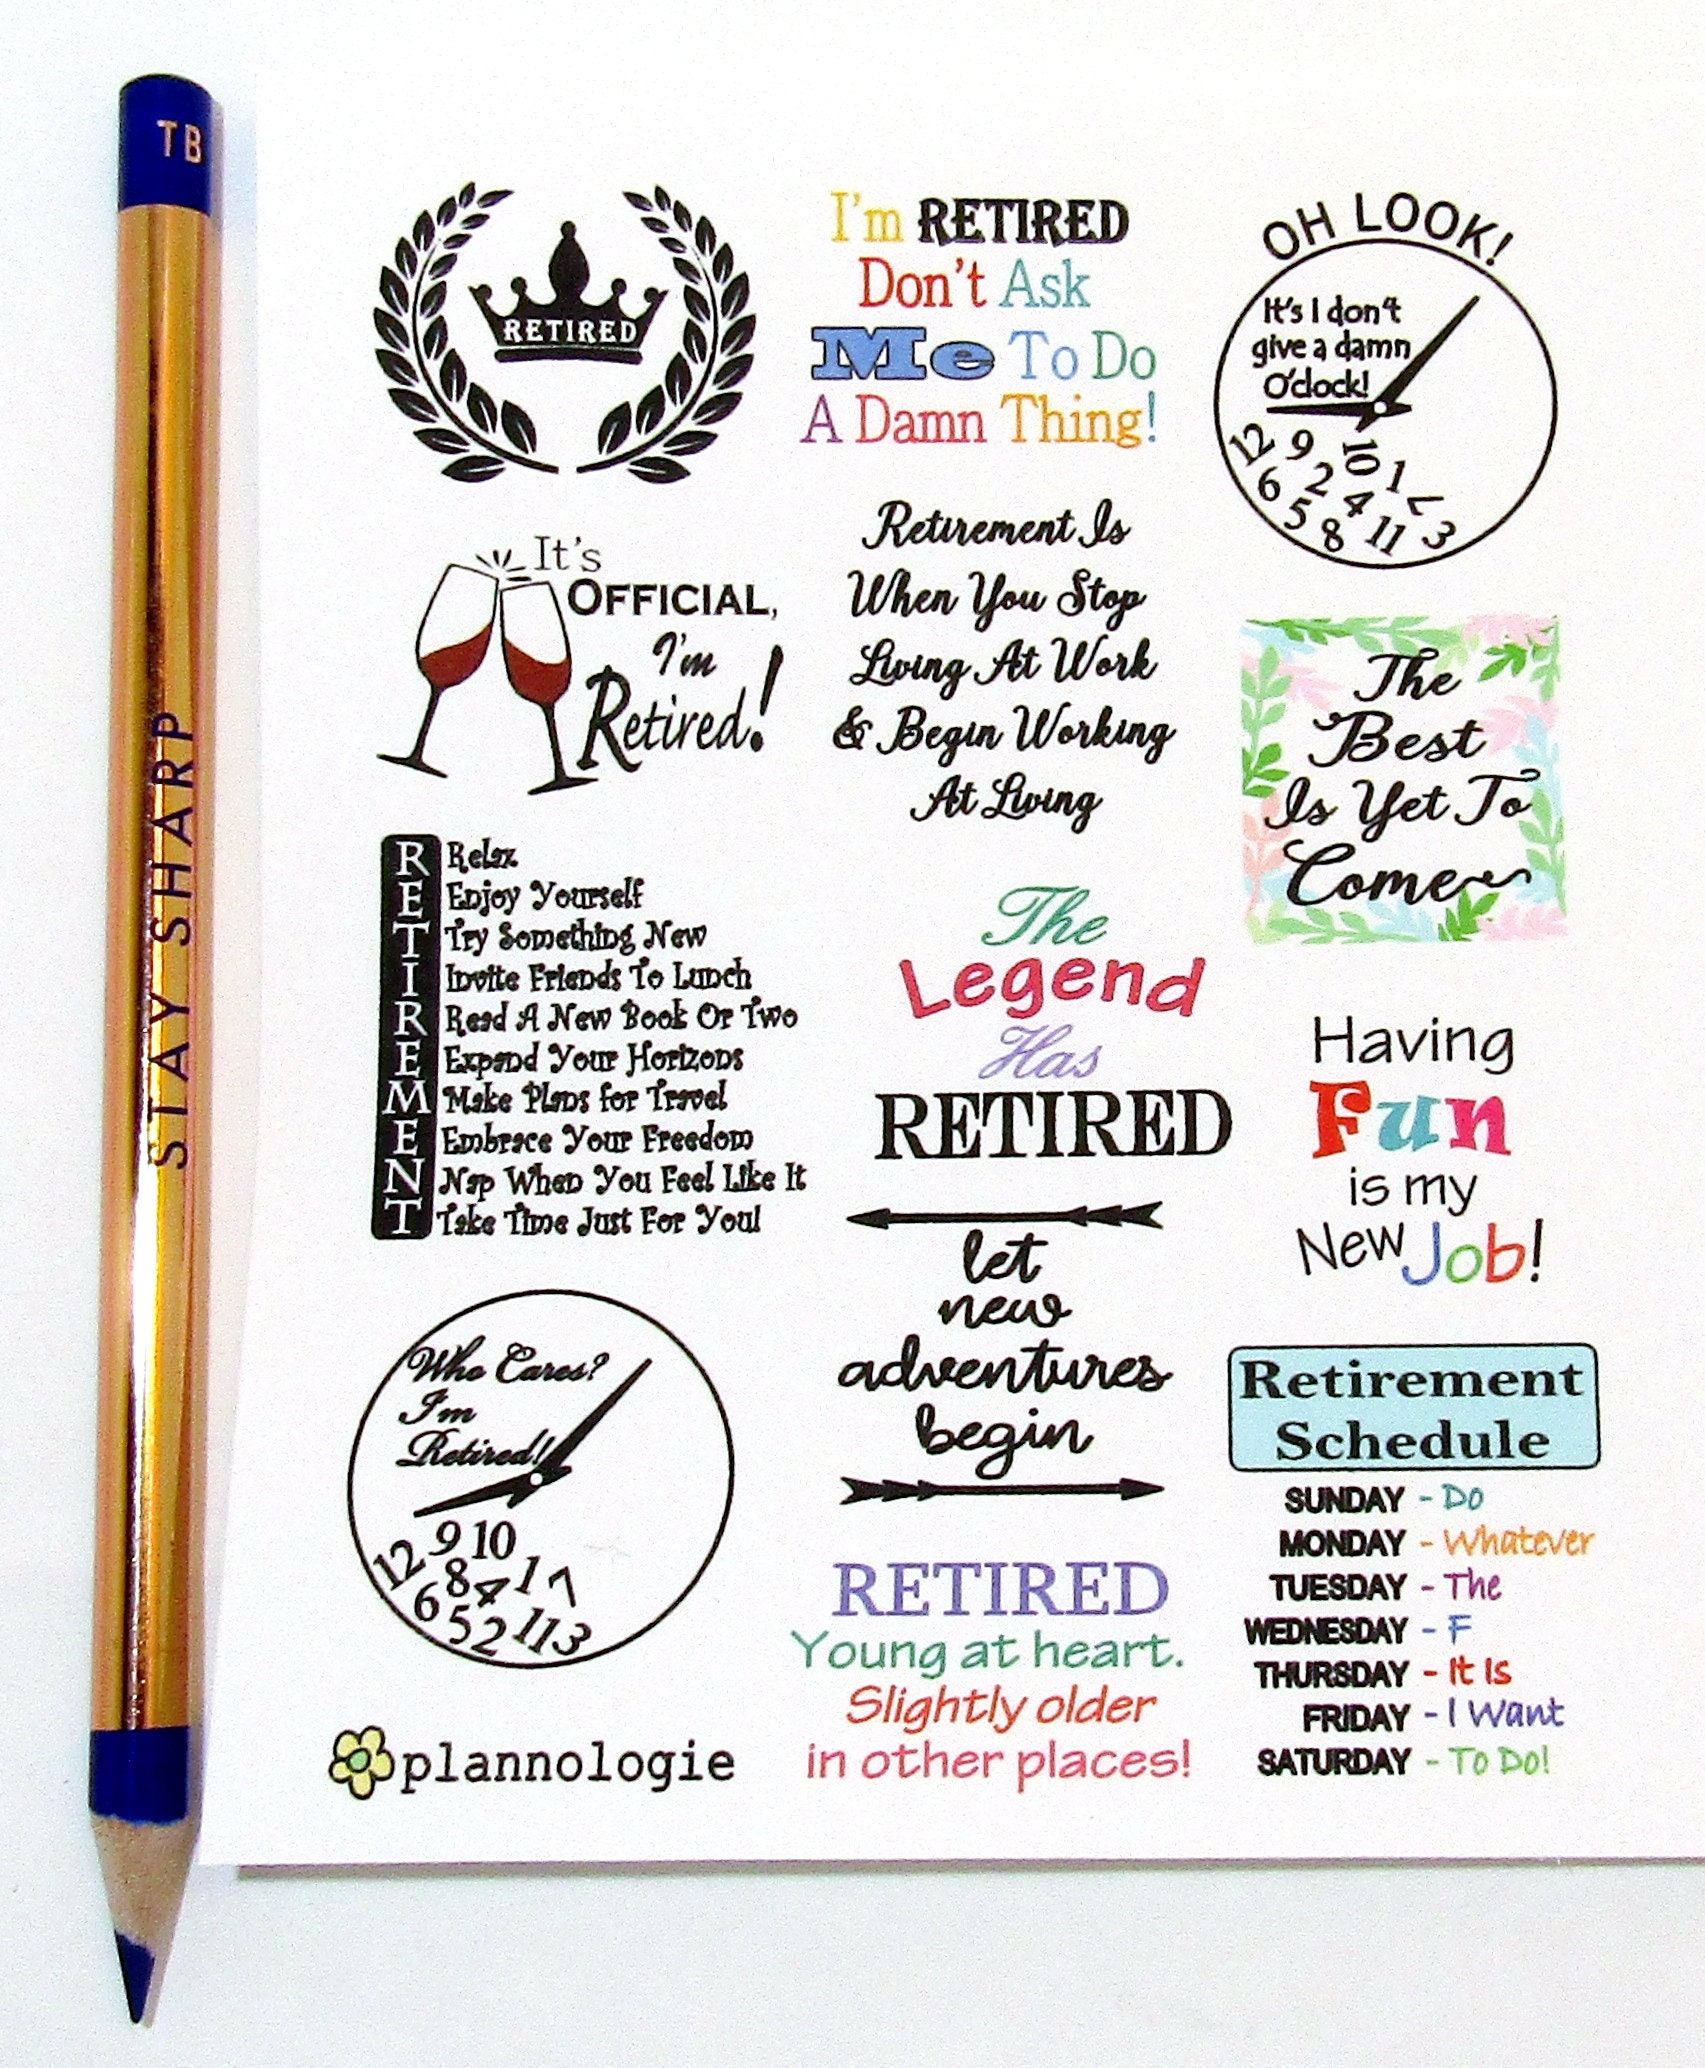 TB
STAY SHARP
RETIRED
I'm RETIRED
Don't Ask
Me To Do
A Damn Thing!
OH LOOK!
It's I don't
give a damn
O'clock!
12 9 10 1
6 2 4 7
5 8 11 3
It's
OFFICIAL,
I'm
Retired!
Retirement Is
When You Stop
Living At Work
& Begin Working
At Living
The
Best
Is Yet To
Come
RETIREMENT
Relax
Enjoy Yourself
Try Something New
Invite Friends To Lunch
Read A New Book Or Two
Expand Your Horizons
Make Plans for Travel
Embrace Your Freedom
Nap When You Feel Like It
Take Time Just For You!
The
Legend
Has
RETIRED
Having
Fun
is my
New Job!
Who Cares?
I'm
Retired!
12 9 10
6 8 4 1 7
5 2 11 3
let
new
adventures
begin
Retirement
Schedule
SUNDAY - Do
MONDAY - Whatever
TUESDAY - The
WEDNESDAY - F
THURSDAY - It Is
FRIDAY - I Want
SATURDAY - To Do!
RETIRED
Young at heart.
Slightly older
in other places!
plannologie